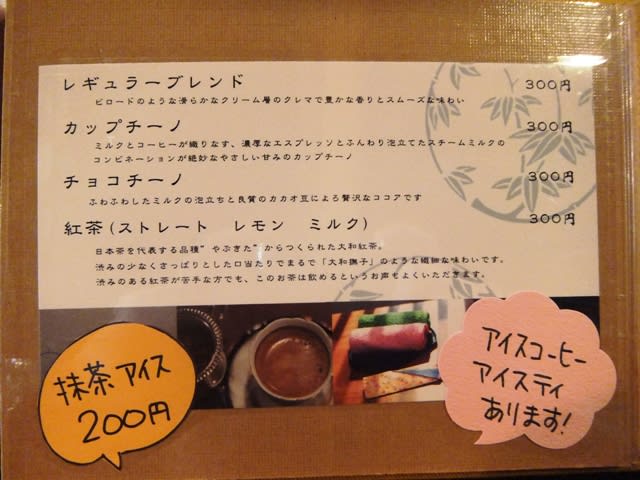 レギュラーブレンド 300円
ビロードのような滑らかなクリーム層のクレマで豊かな香りとスムーズな味わい
カップチーノ 300円
ミルクとコーヒーが織りなす、濃厚なエスプレッソとふんわり泡立てたスチームミルクの
コンビネーションが絶妙なやさしい甘みのカップチーノ
チョコチーノ 300円
ふわふわしたミルクの泡立ちと良質のカカオ豆による贅沢なココアです
紅茶(ストレート レモン ミルク) 300円
日本茶を代表する品種"やぶきた"からつくられた大和紅茶。
渋みの少なくさっぱりとした口当たりでまるで「大和撫子」のような繊細な味わいです。
渋みのある紅茶が苦手な方でも、このお茶は飲めるというお声もよくいただきます。
抹茶アイス
200円
アイスコーヒー
アイスティ
あります!